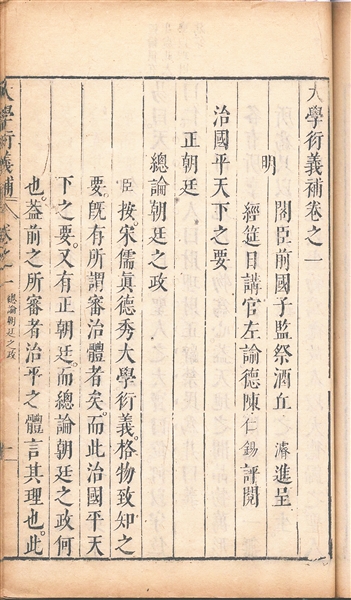 大學衍義補卷之一
明
閣臣前國子監祭酒丘濬進呈
經筵日講官左諭德陳仁錫評閱
治國平天下之要
正朝廷
總論朝廷之政
臣按宋儒眞德秀大學衍義。格物致知之
要。既有所謂審治體者矣。而此治國平天
下之要。又有正朝廷。而總論朝廷之政何
也。葢前之所審者治平之體言其理也。此
大學衍義補 卷之一 總論朝廷之政 一